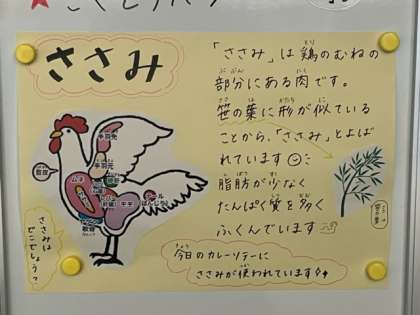 ささみ
「ささみ」は鶏のむねの
部分にある肉です。
笹の葉に形が似ている
ことから、「ささみ」とよば
れています☺
脂肪が少なく
たんぱく質を多く
ふくんでいます
今日のカレーソテーに
ささみが使われています
ささみは
どこでしょう?
手羽先
手羽元